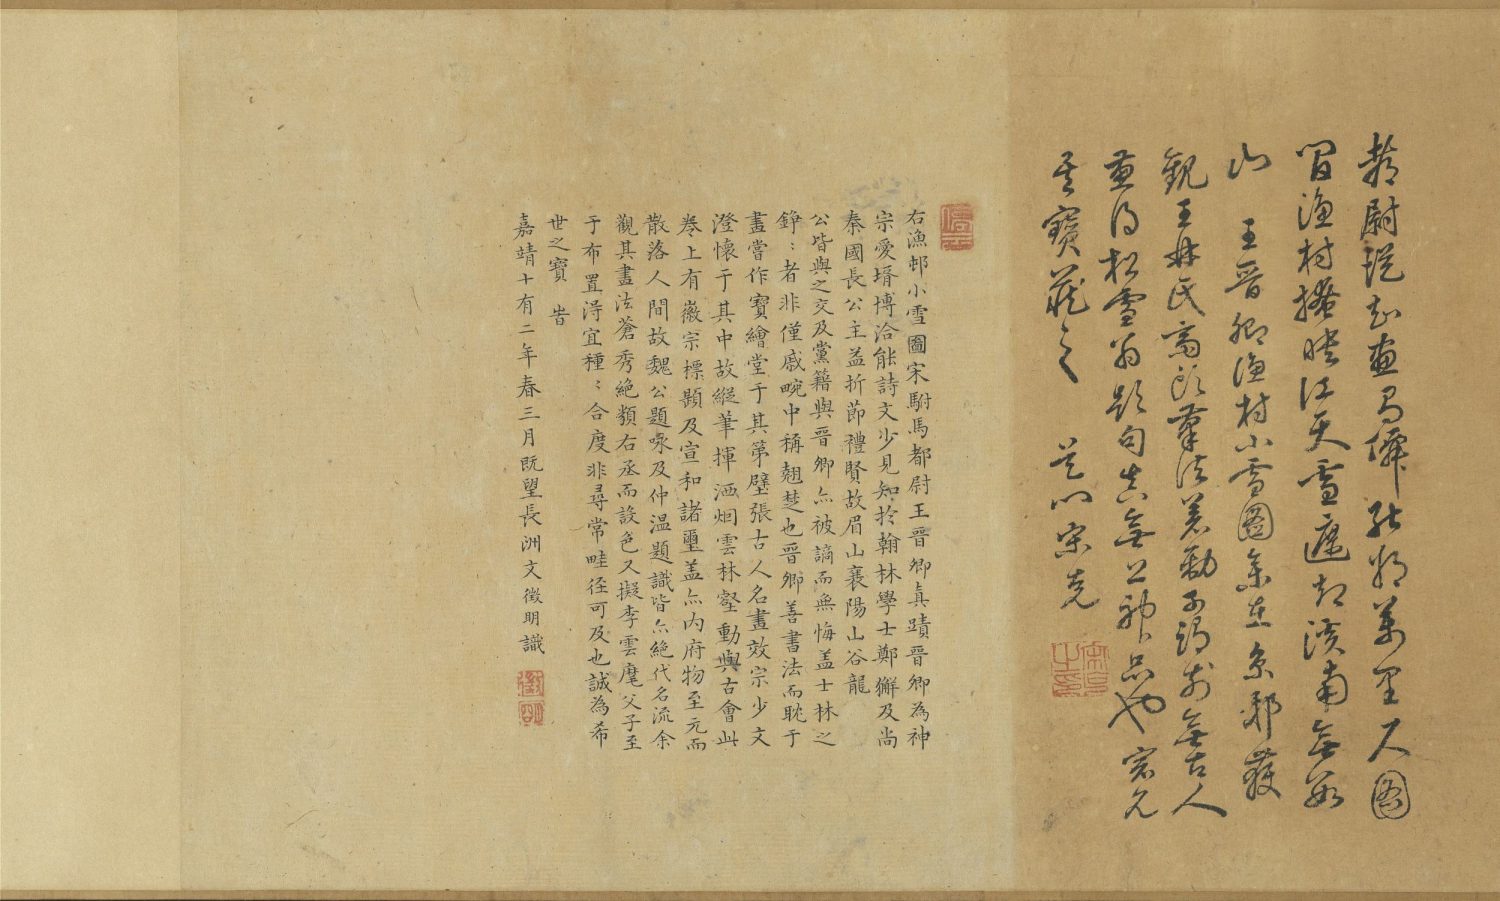 都尉知畫能萬里尺圖
間漁村掩映江天雪南無數
山 王晉卿漁村小雪圖余在京獲
觀王氏筆法無古人
兼得松雪翁題句真無上神品也
其寶藏之 宋克
右漁邨小雪圖宋駙馬都尉王晉卿真蹟晉卿為神
宗愛壻博洽能詩文少見知於翰林學士鄭獬及尚
秦國長公主益折節禮賢故眉山襄陽山谷龍
公皆與之交及黨籍與晉卿亦被謫而無悔盖士林之
錚〻者非僅戚畹中稱翹楚也晉卿善書法而耽于
畫嘗作寶繪堂于其第壁張古人名畫效宗少文
澄懷于其中故縱筆揮洒烟雲林壑動與古會此
卷上有徽宗標題及宣和諸璽盖亦内府物至元而
散落人間故魏公題咏及仲温題識皆亦絶代名流余
觀其畫法蒼秀絶類右丞而設色又擬李雲麾父子至
于布置得宜種〻合度非尋常畦徑可及也誠為希
世之寶 旹
嘉靖十有二年春三月既望長洲文徵明識